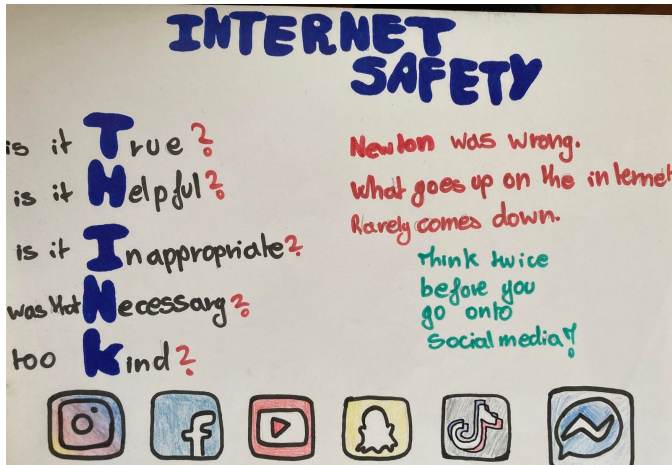 INTERNET
SAFETY
is it True?
is it Helpful?
is it Inappropriate?
was that Necessary?
too Kind?
Newton was wrong.
What goes up on the internet
Rarely comes down.
Think twice
before you
go onto
social media!
f